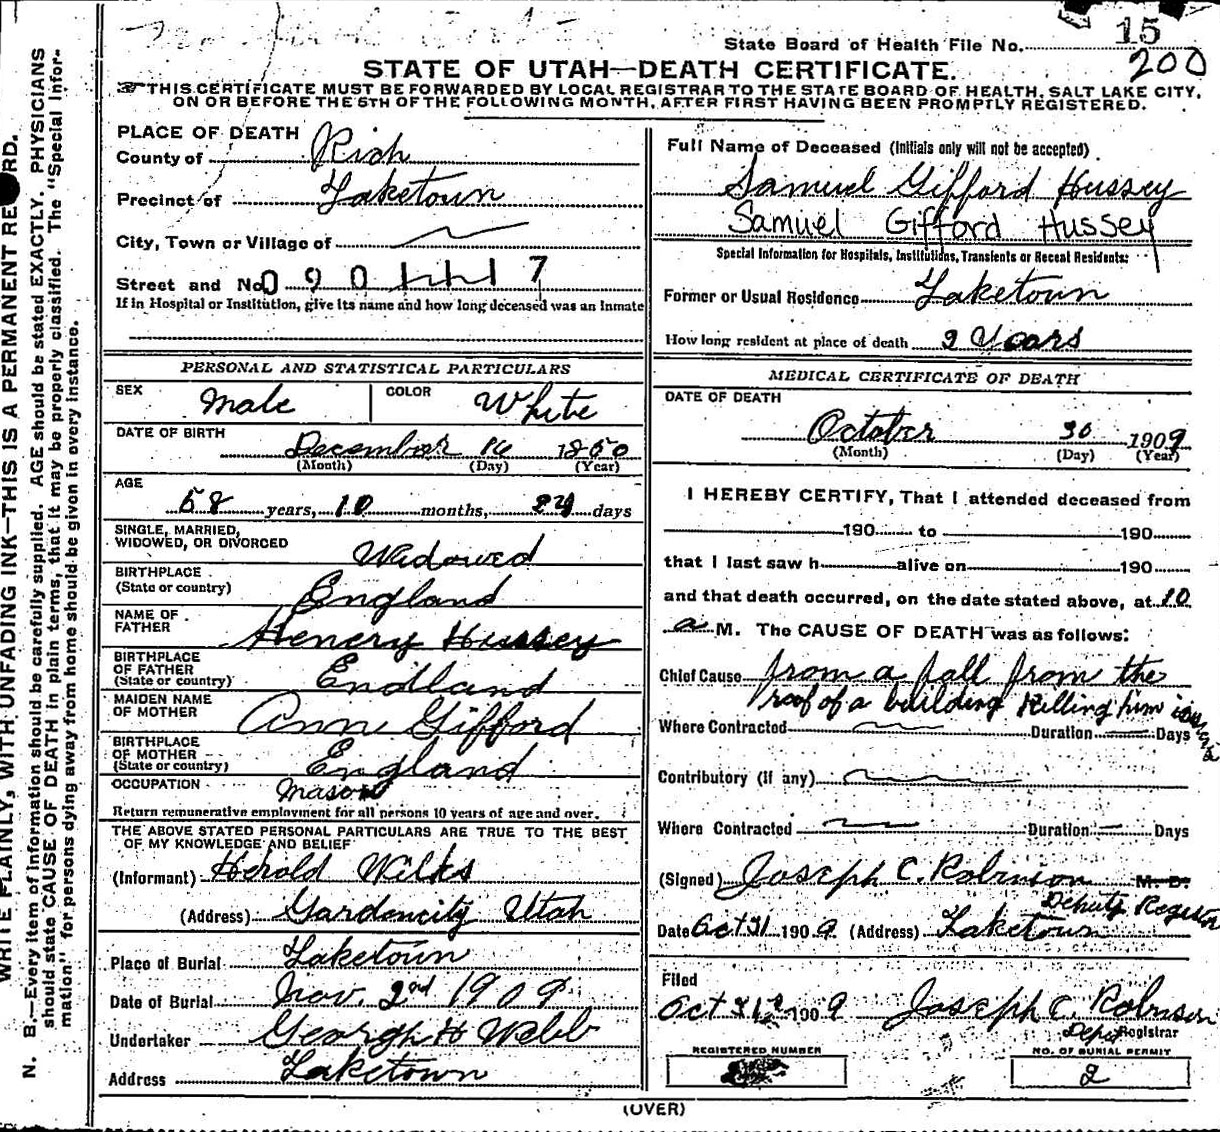 State Board of Health File No. 15
200
STATE OF UTAH—DEATH CERTIFICATE.
THIS CERTIFICATE MUST BE FORWARDED BY LOCAL REGISTRAR TO THE STATE BOARD OF HEALTH, SALT LAKE CITY,
ON OR BEFORE THE 5TH OF THE FOLLOWING MONTH, AFTER FIRST HAVING BEEN PROMPTLY REGISTERED.
WRITE PLAINLY, WITH UNFADING INK—THIS IS A PERMANENT RE RD.
N. B.—Every item of information should be carefully supplied. AGE should be stated EXACTLY. PHYSICIANS
should state CAUSE OF DEATH in plain terms, that it may be properly classified. The "Special Infor-
mation" for persons dying away from home should be given in every instance.
PLACE OF DEATH
County of Rich
Precinct of Laketown
City, Town or Village of
Street and No. 0 9 0 7
If in Hospital or Institution, give its name and how long deceased was an Inmate
PERSONAL AND STATISTICAL PARTICULARS
SEX Male COLOR White
DATE OF BIRTH
December 16 1850
(Month) (Day) (Year)
AGE
58 years, 10 months, 24 days
SINGLE, MARRIED,
WIDOWED, OR DIVORCED Widowed
BIRTHPLACE
(State or country) England
NAME OF
FATHER Henery Hussey
BIRTHPLACE
OF FATHER
(State or country) Endland
MAIDEN NAME
OF MOTHER Ann Gifford
BIRTHPLACE
OF MOTHER
(State or country) England
OCCUPATION Mason
Return remunerative employment for all persons 10 years of age and over.
THE ABOVE STATED PERSONAL PARTICULARS ARE TRUE TO THE BEST
OF MY KNOWLEDGE AND BELIEF
(Informant) Herold Wilks
(Address) Gardencity Utah
Place of Burial Laketown
Date of Burial Nov. 2nd 1909
Undertaker George H Webb
Address Laketown
Full Name of Deceased (Initials only will not be accepted)
Samuel Gifford Hussey
Samuel Gifford Hussey
Special Information for Hospitals, Institutions, Transients or Recent Residents:
Former or Usual Residence Laketown
How long resident at place of death 2 Years
MEDICAL CERTIFICATE OF DEATH
DATE OF DEATH
October 30 1909
(Month) (Day) (Year)
I HEREBY CERTIFY, That I attended deceased from
190 to 190
that I last saw h alive on 190
and that death occurred, on the date stated above, at 10
a M. The CAUSE OF DEATH was as follows:
Chief Cause from a fall from the
roof of a building killing him
Where Contracted Duration Days
Contributory (if any)
Where Contracted Duration Days
(Signed) Joseph C. Robinson M. D.
Deputy Register
Date Oct 31 1909 (Address) Laketown
Filed
Oct 31 1909 Joseph C. Robinson
Dept Registrar
REGISTERED NUMBER
NO. OF BURIAL PERMIT
2
(OVER)